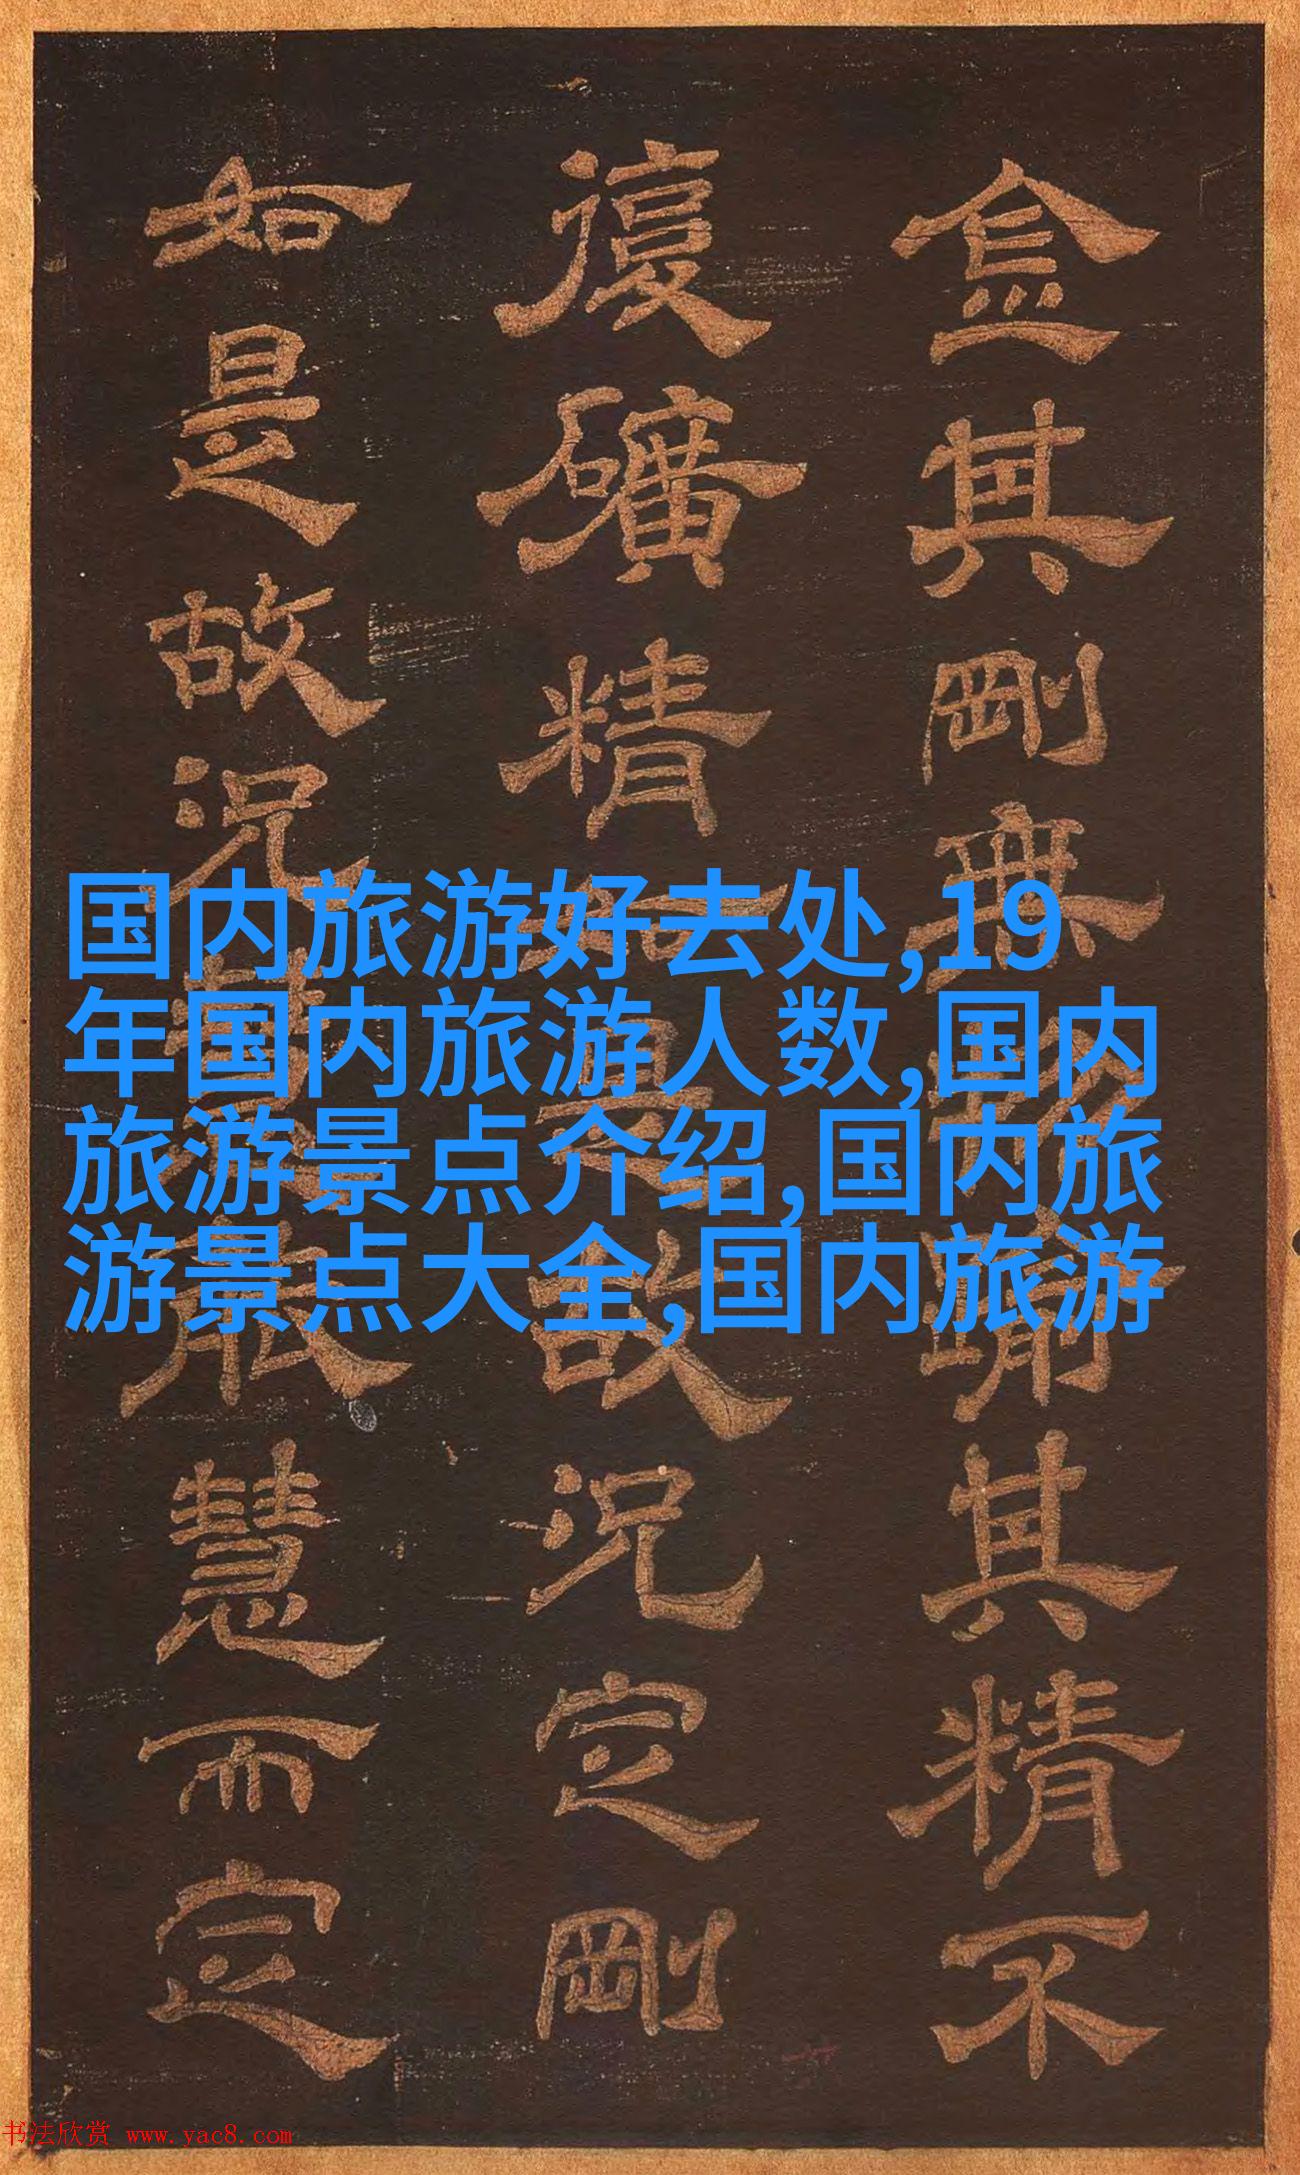 国内旅游好去处,19
年国内旅游人数,国内
旅游景点介绍,国内旅
游景点大全,国内旅游
金其剛無踰其精不
復礦精如是故況定剛
如是故況般慧而定
书法欣赏 www.yac8.com